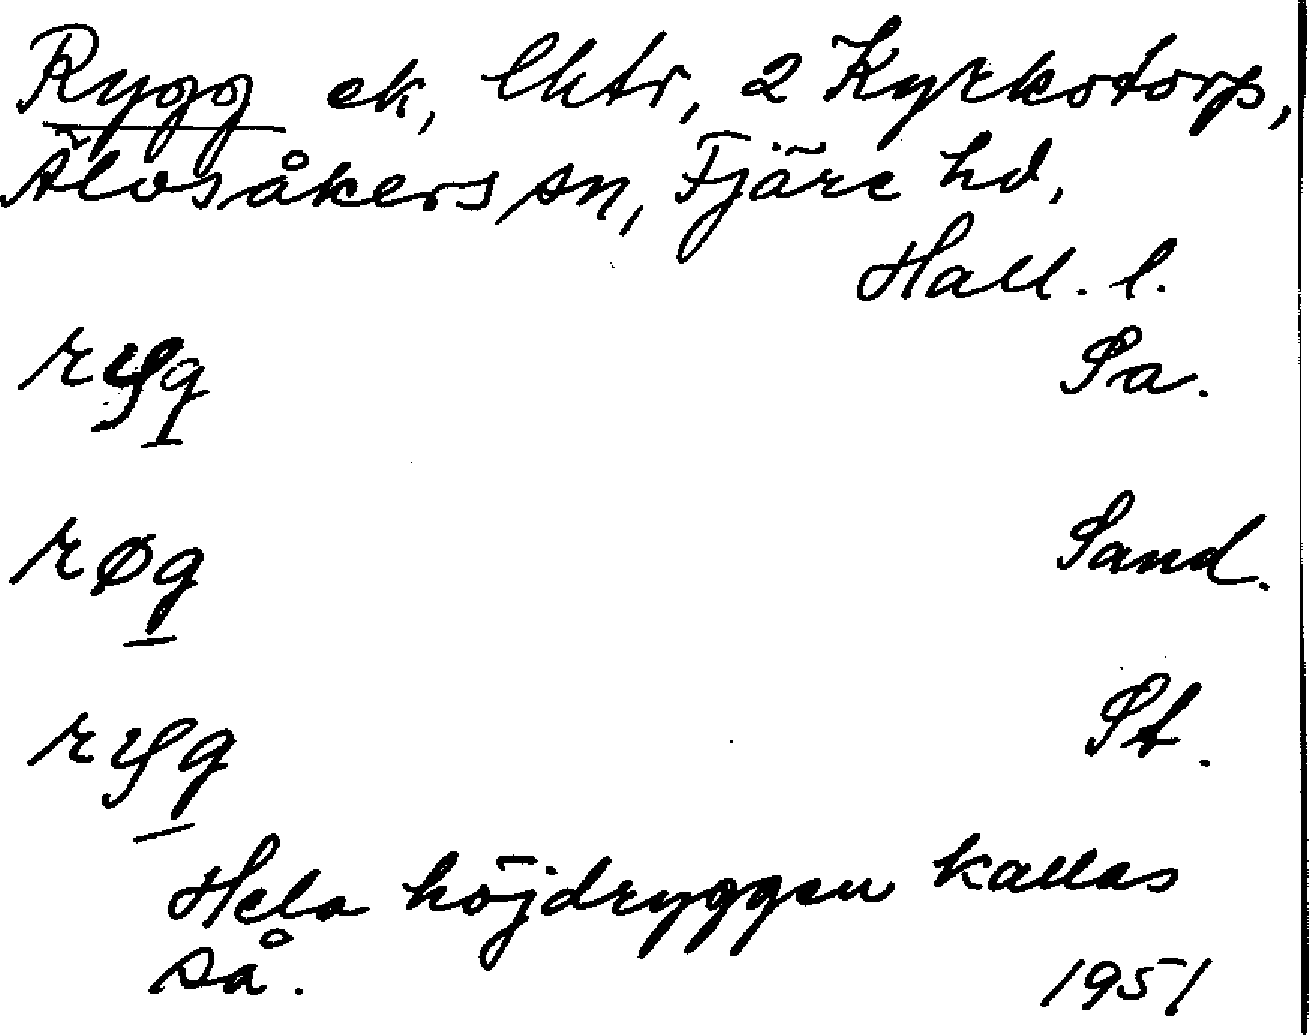 Rygg ek, lktr, 2 Kyrkstorp,
Älvsåkers sn, Fjäre hd,
Hall. l.
ryg Sa.
røg Sand.
ryg St.
Hela höjdryggen kallas
så. 1951